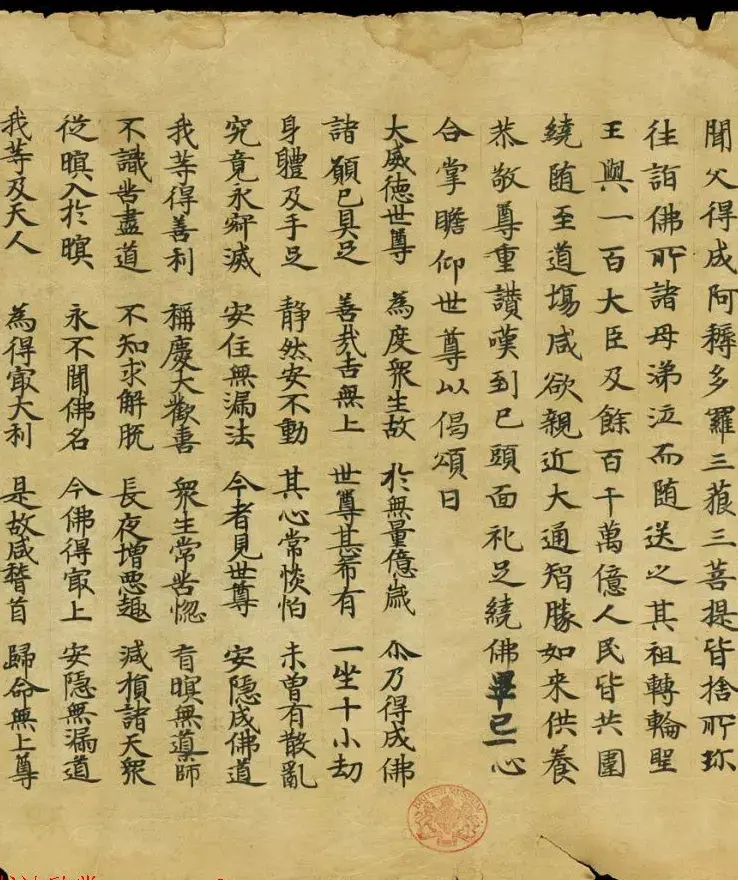 聞父得成阿耨多羅三藐三菩提皆捨所珎
往詣佛所諸母涕泣而随送之其祖轉輪聖
王與一百大臣及餘百千萬億人民皆共圍
繞随至道場咸欲親近大通智勝如来供養
恭敬尊重讃嘆到已頭面礼足繞佛畢已一心
合掌瞻仰世尊以偈頌曰
大威德世尊 為度衆生故 於無量億歲 尒乃得成佛
諸願已具足 善哉吉無上 世尊甚希有 一坐十小劫
身體及手足 静然安不動 其心常惔怕 未曾有散亂
究竟永寂滅 安住無漏法 今者見世尊 安隱成佛道
我等得善利 稱慶大歡喜 衆生常苦惱 盲暝無導師
不識苦盡道 不知求解脱 長夜增惡趣 減損諸天衆
從暝入於暝 永不聞佛名 今佛得冣上 安隱無漏道
我等及天人 為得冣大利 是故咸稽首 歸命無上尊
BRITISH MUSEUM